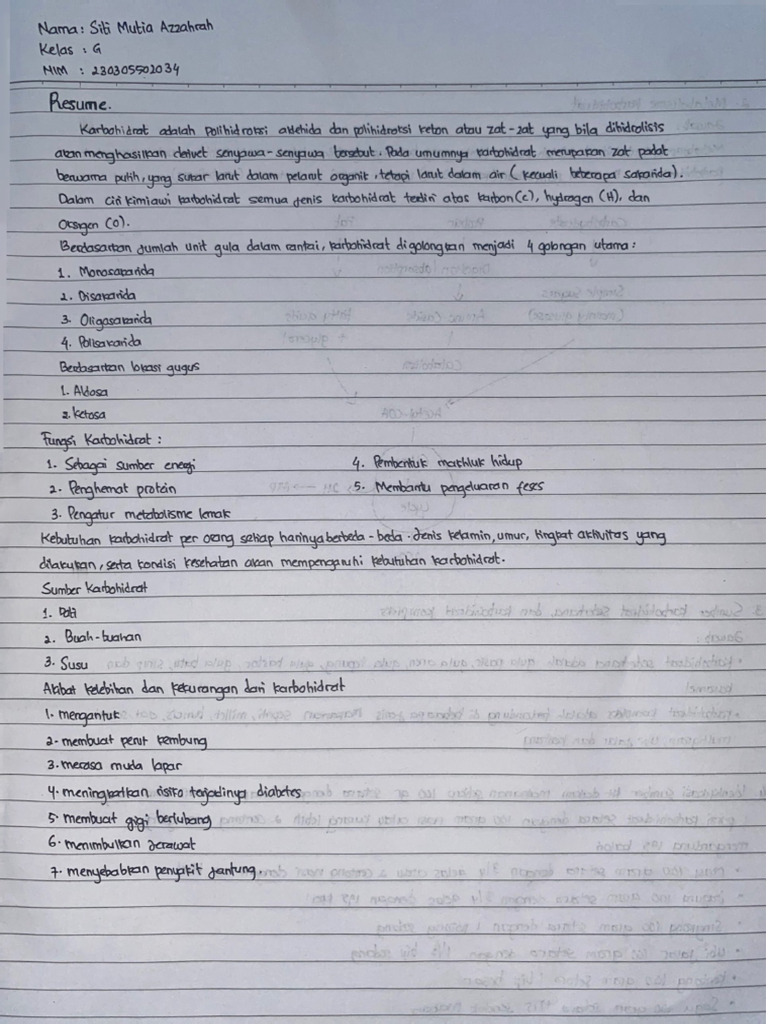 Nama: Siti Mutia Azzahrah
Kelas : G
NIM : 230305502034
Resume.
Karbohidrat adalah Polihidroksi aldehida dan polihidroksi keton atau zat-zat yang bila dihidrolisis
akan menghasilkan derivet senyawa-senyawa tersebut. Pada umumnya karbohidrat merupakan zat padat
berwarna putih, yang sukar larut dalam pelarut organik, tetapi larut dalam air (kecuali beberapa sakarida).
Dalam ciri kimiawi karbohidrat semua jenis karbohidrat terdiri atas karbon (C), hydrogen (H), dan
Oksigen (O).
Berdasarkan jumlah unit gula dalam rantai, karbohidrat digolongkan menjadi 4 golongan utama:
1. Monosakarida
2. Disakarida
3. Oligasakarida
4. Polisakarida
Berdasarkan lokasi gugus
1. Aldosa
2. ketosa
Fungsi Karbohidrat :
1. Sebagai sumber energi 4. Pembentuk makhluk hidup
2. Penghemat protein 5. Membantu pengeluaran feses
3. Pengatur metabolisme lemak
Kebutuhan karbohidrat per orang setiap harinya berbeda-beda. Jenis kelamin, umur, tingkat aktivitas yang
dilakukan, serta kondisi kesehatan akan mempengaruhi kebutuhan karbohidrat.
Sumber Karbohidrat
1. Roti
2. Buah-buahan
3. Susu
Akibat kelebihan dan kekurangan dari karbohidrat
1. mengantuk
2. membuat perut kembung
3. merasa muda lapar
4. meningkatkan risiko terjadinya diabetes
5. membuat gigi berlubang
6. menimbulkan jerawat
7. menyebabkan penyakit jantung.